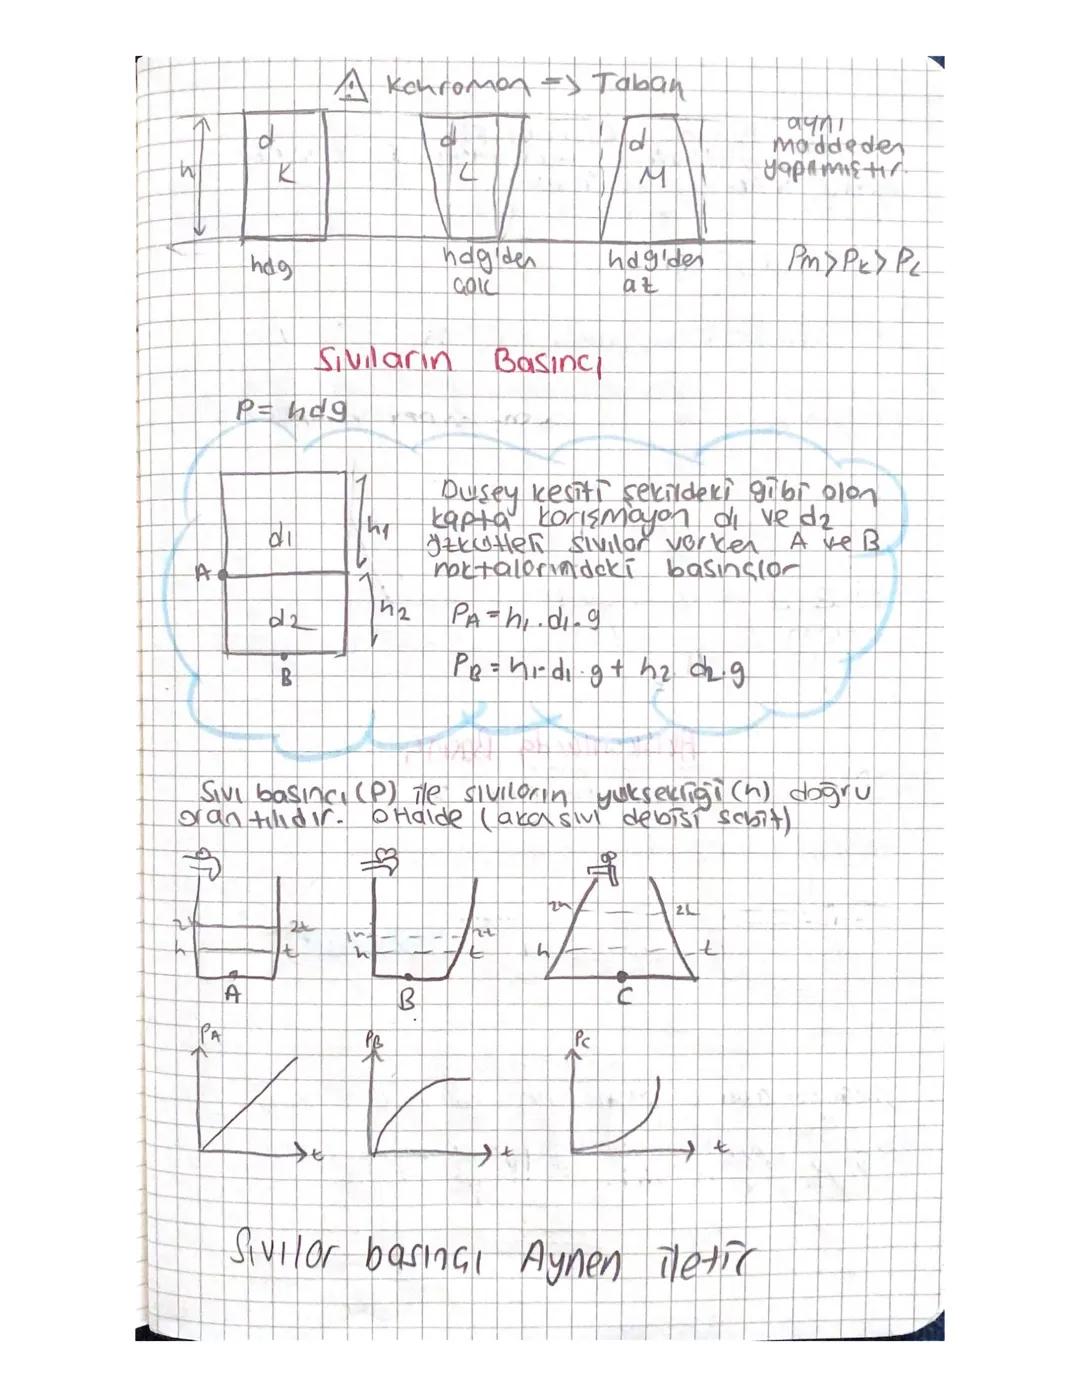 Kahraman => Taban
d
K
h
d
L
d
M
aynı
maddeden
yapılmıştır.
hdg
hdg'den
çok
hdg'den
az
Pm>PK>PL
Sıvıların Basıncı
P= hdg
d1
h1
A
d2
h2
B
Düşey kesiti şekildeki gibi olan
kapta karışmayan d1 ve d2
özkütleli sıvılar varken A ve B
noktalarındaki basınçlar
PA = h1.d1.g
PB = h1.d1.g + h2.d2.g
Sıvı basıncı (P) ile sıvıların yüksekliği (h) doğru
orantılıdır. O halde (akan sıvı debisi sabit)
2t
h
t
A
2t
h
t
B
2h
2t
h
t
C
PA
t
PB
t
PC
t
Sıvılar basıncı Aynen iletir